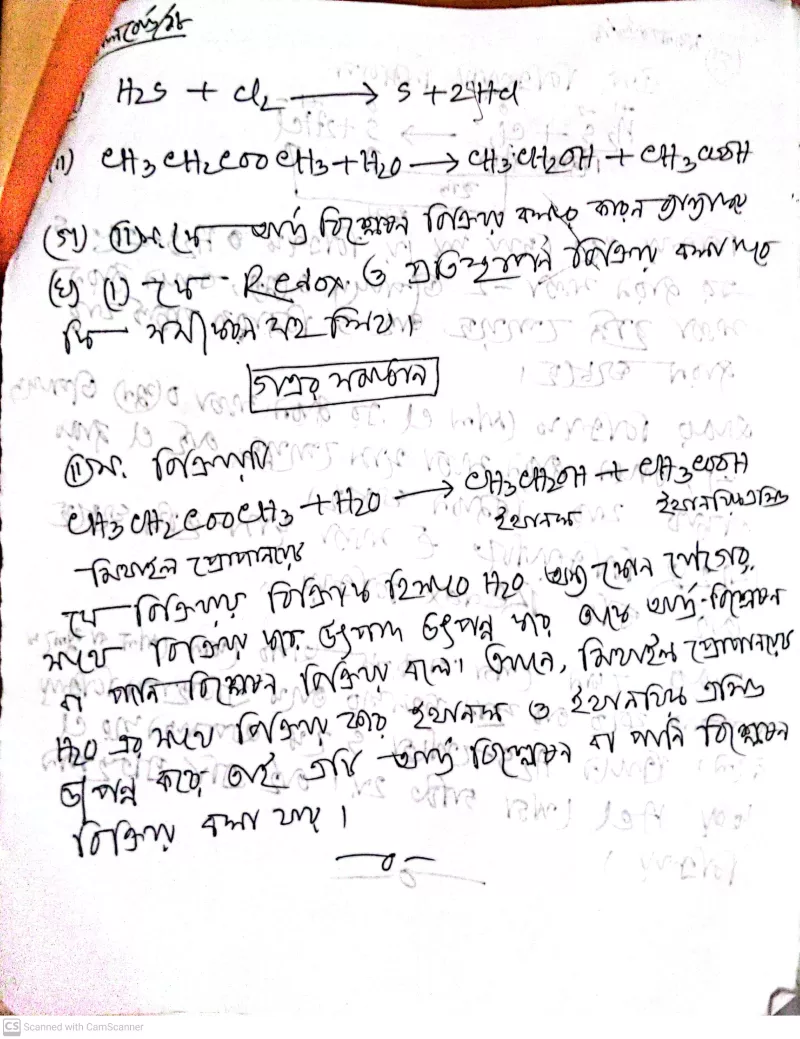 H2S + Cl2 → S + 2HCl
(ii) CH3CH2COOCH3 + H2O → CH3CH2OH + CH3COOH
(গ) (ii) নং কে আর্দ্র বিশ্লেষন বিক্রিয়া বলার কারন
(ঘ) (i) নং কে Redox ও প্রতিস্থাপন বিক্রিয়া বলা যাবে
কি
গ এর সমাধান
(ii) নং বিক্রিয়াটি
CH3CH2COOCH3 + H2O → CH3CH2OH + CH3COOH
মিথাইল প্রোপানয়েট ইথানল ইথানয়িক এসিড
যে বিক্রিয়ায় বিক্রিয়ক হিসাবে H2O অন্য কোন যৌগের
সাথে বিক্রিয়া করে উৎপাদ উৎপন্ন করে তাকে আর্দ্র বিশ্লেষন
বা পানি বিশ্লেষন বিক্রিয়া বলে। মিথাইল প্রোপানয়েট
H2O এর সাথে বিক্রিয়া করে ইথানল ও ইথানয়িক এসিড
উৎপন্ন করে তাই এটি আর্দ্র বিশ্লেষন বা পানি বিশ্লেষন
বিক্রিয়া বলা যায়।
CS Scanned with CamScanner